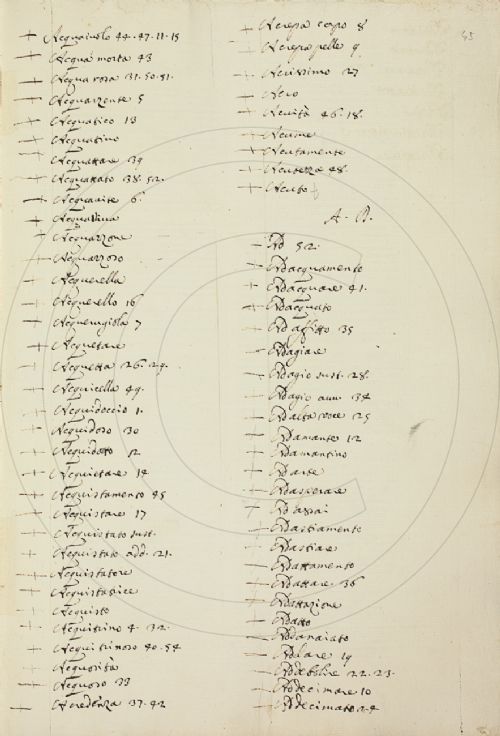 Acquaiuolo 44. 47. 11. 15
Acqua morta 43
Acqua rosa 31. 50. 51.
Acquarzente 5
Acquatico 13
Acquatino
Acquattare 39
Acquattato 38. 52.
Acquavite 6.
Acquazzone
Acquerella
Acquerello 16
Acquerugiola 7
Acquetare
Acquetta 26. 29.
Acquicella 49.
Acquidoccio 1.
Acquidoso 30
Acquidotto 12
Acquietare 14
Acquistamento 45
Acquistare 17
Acquistato sust.
Acquistato add. 21.
Acquistatore
Acquistatrice
Acquisto
Acquitrino 4. 32.
Acquitrinoso 40. 54
Acquosità
Acquoso 33
Acredenza 37. 42
45
Acrepa corpo 8
Acrepa pelle 9
Acrissimo 27
Acro
Acuità 46. 18.
Acume
Acutamente
Acutezza 48.
Acuto
A. D.
Ad 52.
Adacquamento
Adacquare 41.
Adacquato
Ad affitto 35
Adagiare
Adagio sust. 28.
Adagio auu. 34
Ad alta voce 25
Adamante 12
Adamantino
Adasperare
Ad assai
Adastiamento
Adastiare
Adattamento
Adattare 36
Adattazione
Adatto
Addanaiato
Addare 19
Addebolire 22. 23.
Addecimare 10
Addecimato 24